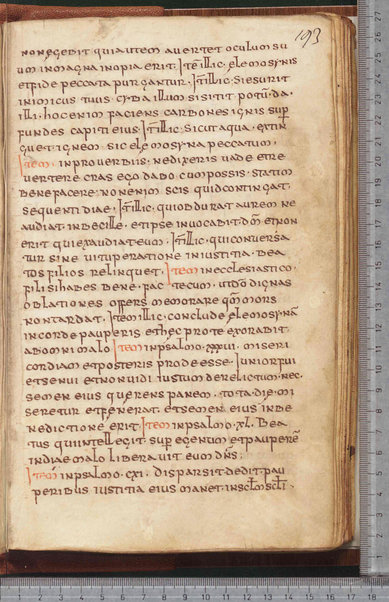 193
non egebit qui autem avertet oculum su
um in magna inopia erit· Item illic· elemosynis
et fide peccata purgantur· Item illic· Si esurit
inimicus tuus ciba illum si sitit potū da
illi· hoc enim faciens carbones ignis sup
fundes capiti eius· Item illic· Sicut aqua extin
guet ignem· sic elemosyna peccatum·
Item· in proverbiis· ne dixeris vade et re
vertere cras ego dabo cum possis· statim
bene facere· non enim scis quid contingat·
sequenti die· Item illic· qui obdurat aurem ne
audiat inbecille· et ipse invocabit dm̄ et non
erit qui exaudiat eum· Item illic· qui conversa
tur sine vituperatione in iustitia· bea
tos filios relinquet· Item in ecclesiastico·
fili si habes bene· fac tecum· ut dō dignas
oblationes offers memorare qm̄ mors
non tardat· Item illic· conclude elemosynā
in corde pauperis et hęc pro te exorabit
ab omni malo Item in psalmo xxxvi· miseri
cordiam et posteris prodeesse· Junior fui
et senui et non vidi iustum derelictum nec·
semen eius querens panem· tota die mi
seretur et fenerat· et semen eius in be
nedictione erit· Item in psalmo· xl· Bea
tus qui intellegit sup egenum et pauperē
in die malo liberavit eum dn̄s·
Item in psalmo cxi· disparsit dedit pau
peribus iustitia eius manet in sclm̄ scli·